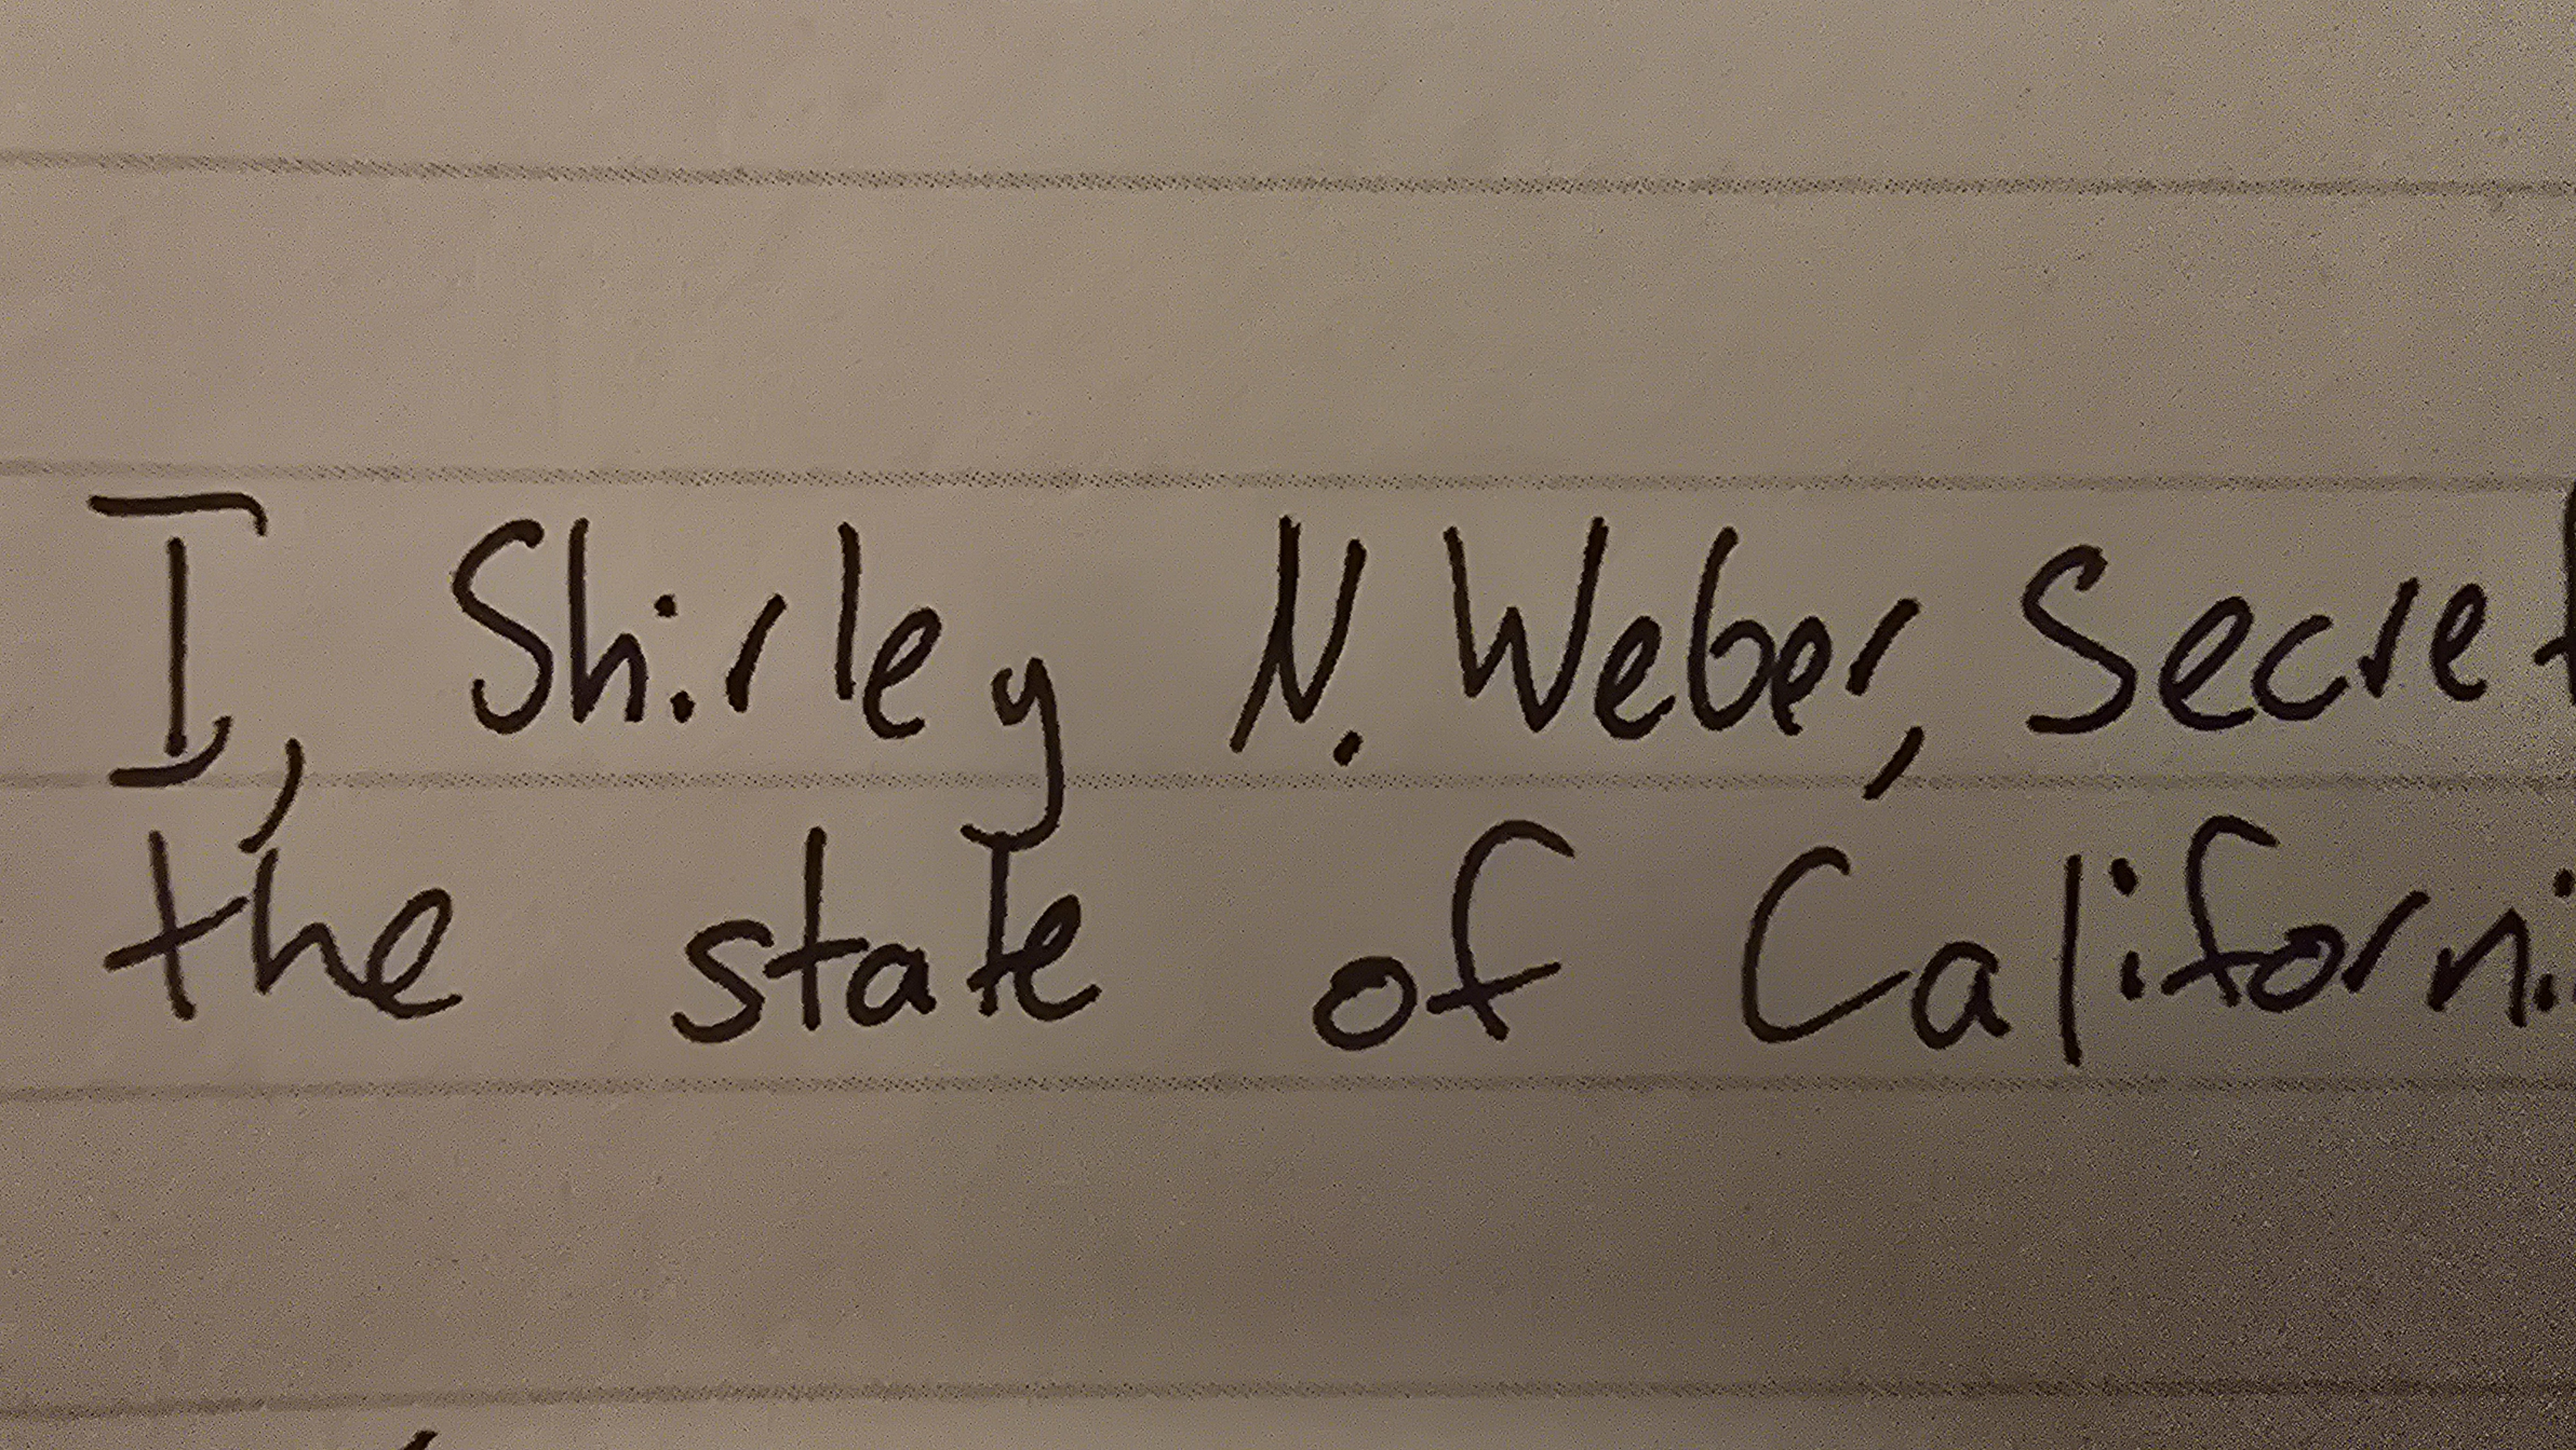 I, Shirley N. Weber, Secret
the state of Californi